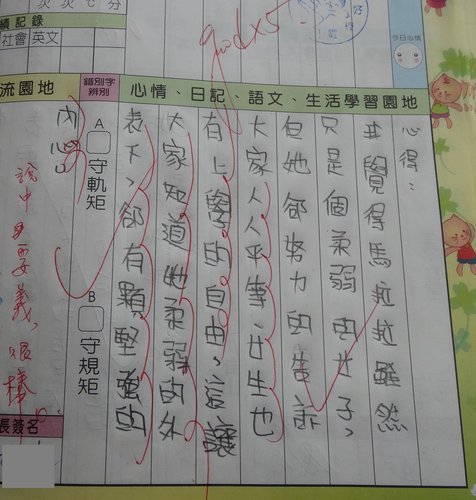 次 次 七 分
績記錄
社會 英文
good x5
今日心情
流園地
錯別字
辨別
心情、日記、語文、生活學習園地
心得：
我覺得馬拉拉雖然
只是個柔弱的女子，
但她卻努力的告訴
大家人人平等、女生也
有上學的自由，這讓
大家知道她柔弱的外
表下，卻有顆堅強的
內心。
A 守軌矩
B 守規矩
說中要義，很棒
長簽名